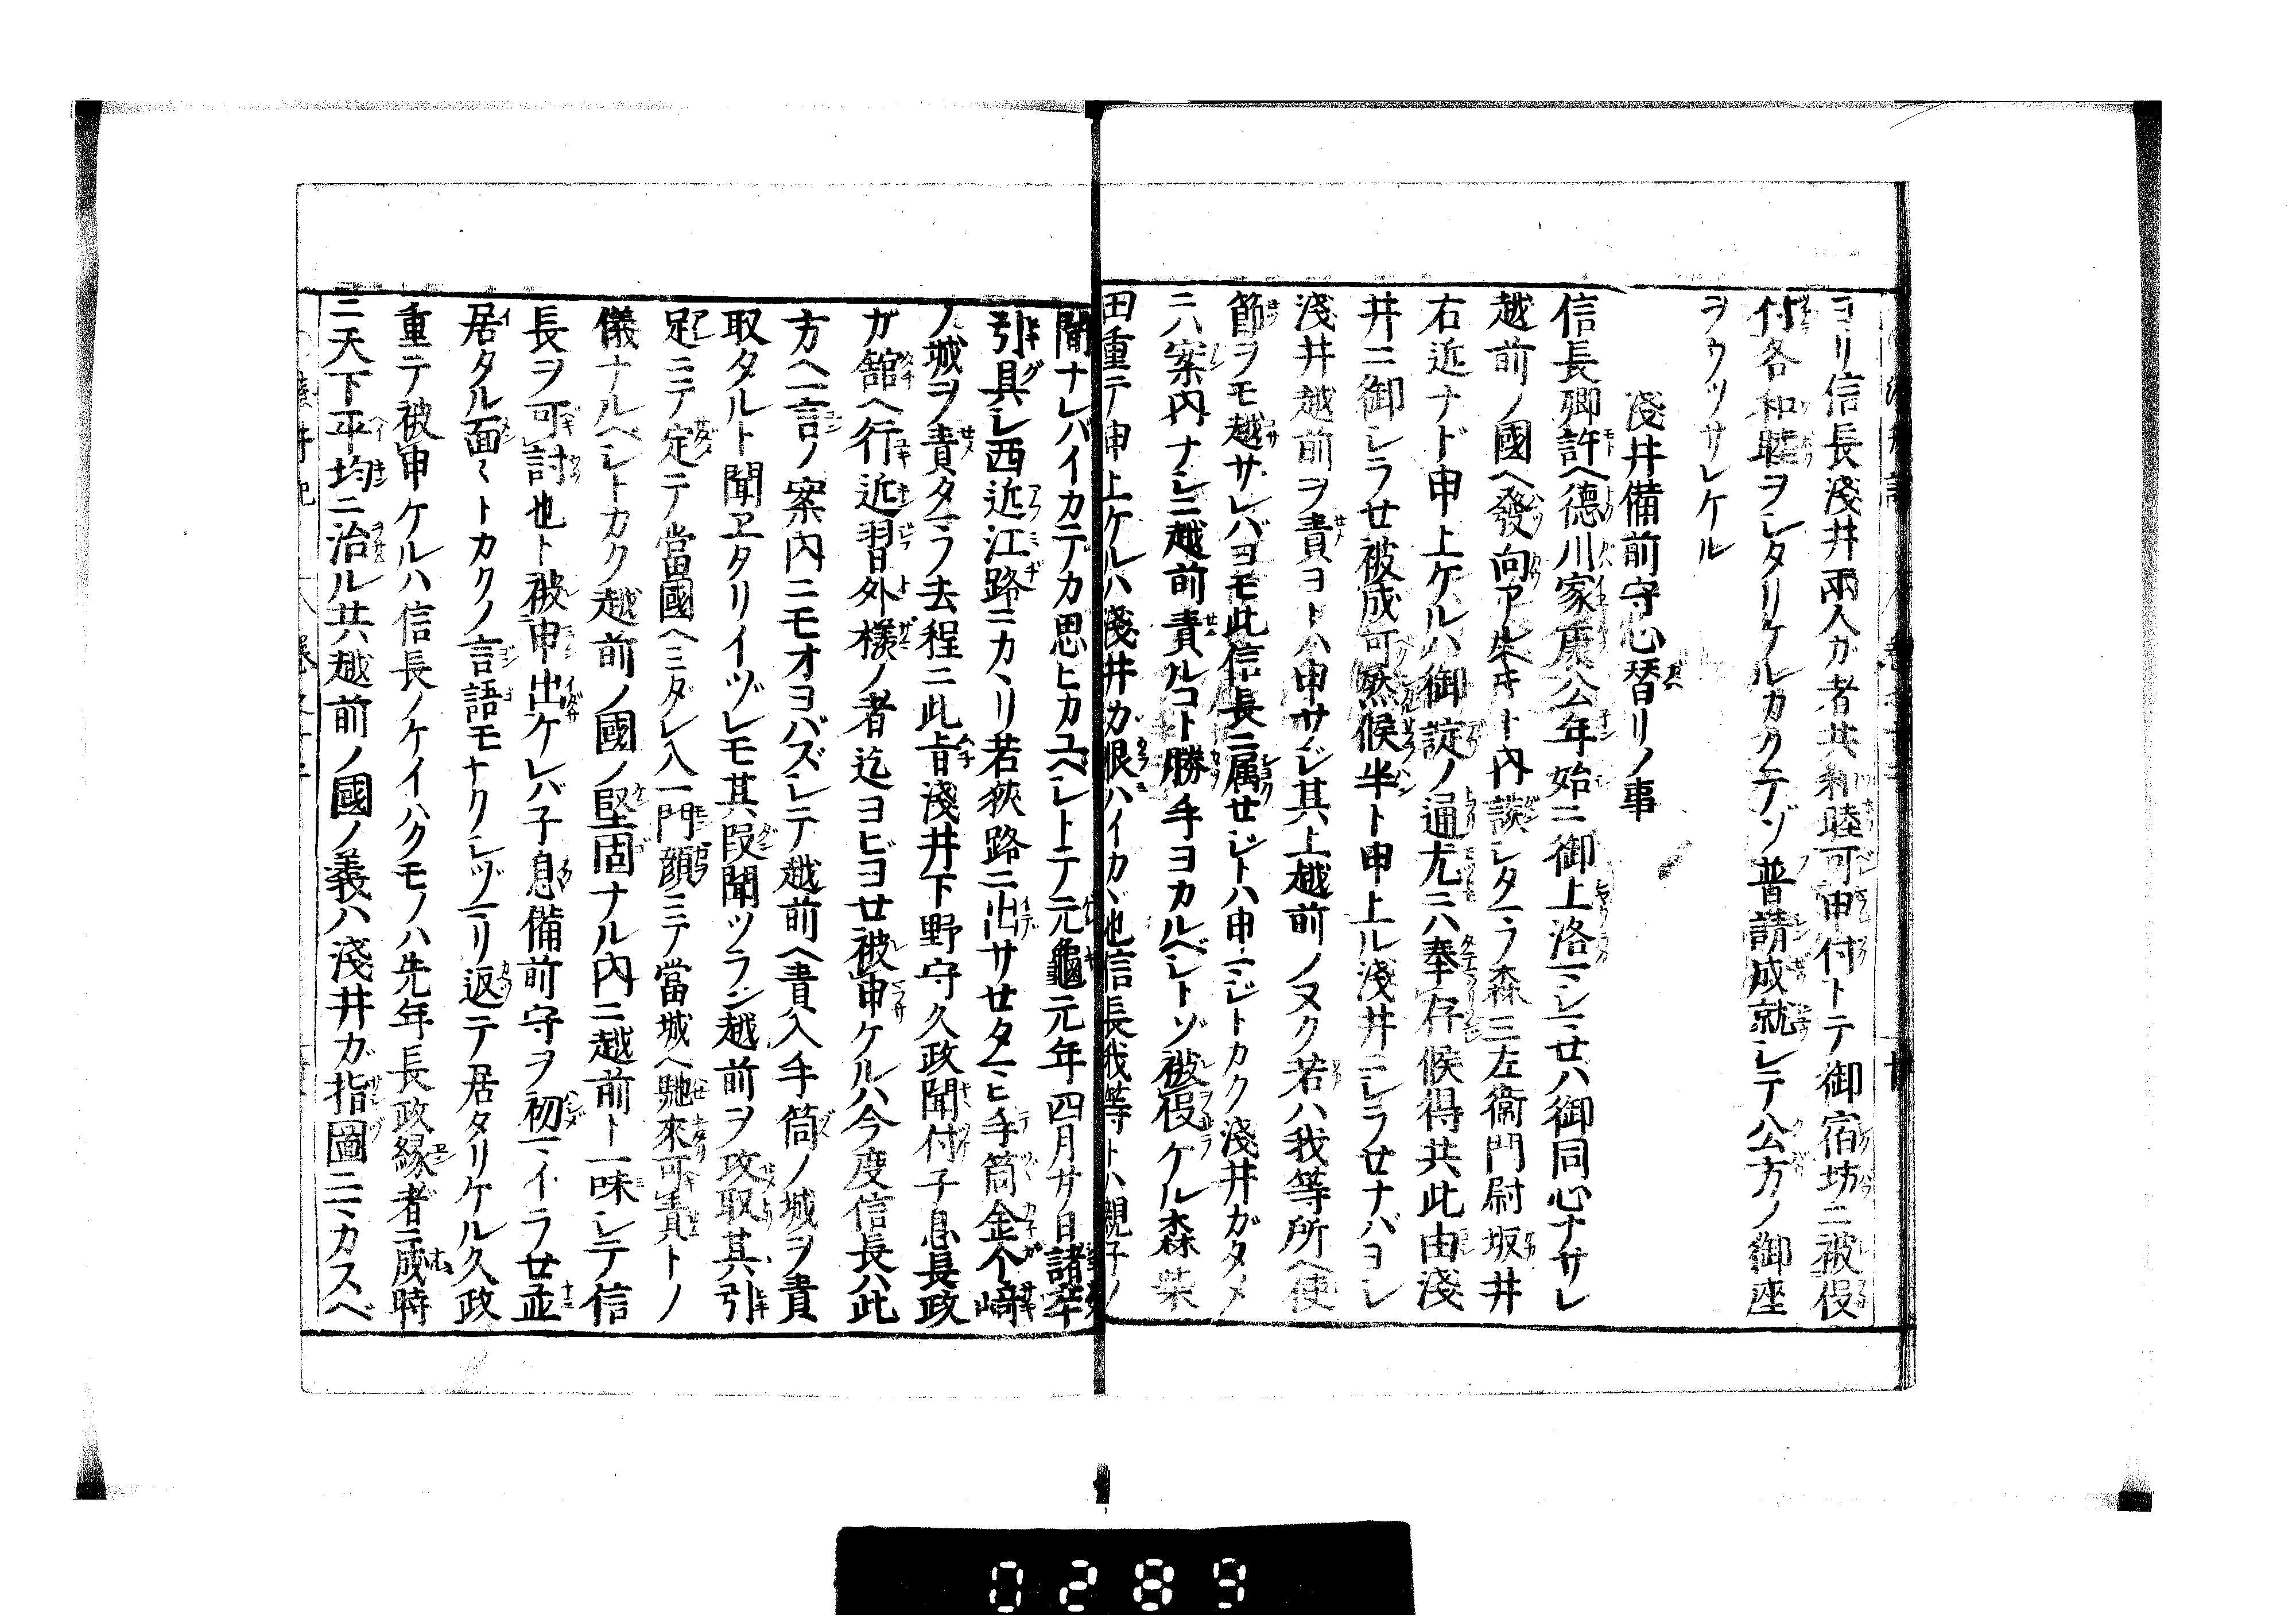 ヨリ信長淺井兩人カ者共和睦可申付トテ御宿坊ニ被仰
付各和睦ヲシタリケルカクテゾ普請成就シテ公方ノ御座
ヲウツサレケル
淺井備前守心替リノ事
信長卿許ヘ德川家康公年始ニ御上洛マシマセハ御同心ナサレ
越前ノ國ヘ發向アルベキト內談シタマフ森三左衞門尉坂井
右近ナド申上ケルハ御諚ノ通尤ニハ奉存候得共此由淺
井ニ御シラセ被成可然候半ト申上ル淺井ニシラセナバヨシ
淺井越前ヲ責ヨトハ申サジ其上越前ノヌク若ハ我等所ヘ使
節ヲモ越サレバヨモ此信長ニ属セジトハ申マジトカク淺井ガタメ
ニハ案內ナシニ越前責ルコト勝手ヨカルベシトゾ被仰ケル森柴
田重テ申上ケルハ淺井カ恨ハイカヾ也信長我等トハ親子ノ
間ナレバイカデカ思ヒカユベシトテ元龜元年四月廿日諸卒
引具シ西近江路ニカヽリ若狹路ニ出サセタマヒ手筒金个﨑
ノ城ヲ責タマフ去程ニ此旨淺井下野守久政聞付子息長政
ガ舘ヘ行近習外樣ノ者迄ヨビヨセ被申ケルハ今度信長ハ此
方ヘ一言ノ案內ニモオヨバズシテ越前ヘ責入手筒ノ城ヲ責
取タルト聞ヱタリイヅレモ其段聞ツラン越前ヲ攻取其引
足ニテ定テ當國ヘミダレ入一門顔ニテ當城ヘ馳來可責トノ
儀ナルベシトカク越前ノ國ノ堅固ナル內ニ越前ト一味シテ信
長ヲ可討也ト被申出ケレバ子息備前守ヲ初マイラセ並
居タル面〻トカクノ言語モナクシヅマリ返テ居タリケル久政
重テ被申ケルハ信長ノケイハクモノハ先年長政縁者ニ成時
ニ天下平均ニ治ル共越前ノ國ノ義ハ淺井ガ指圖ニマカスベ
0289